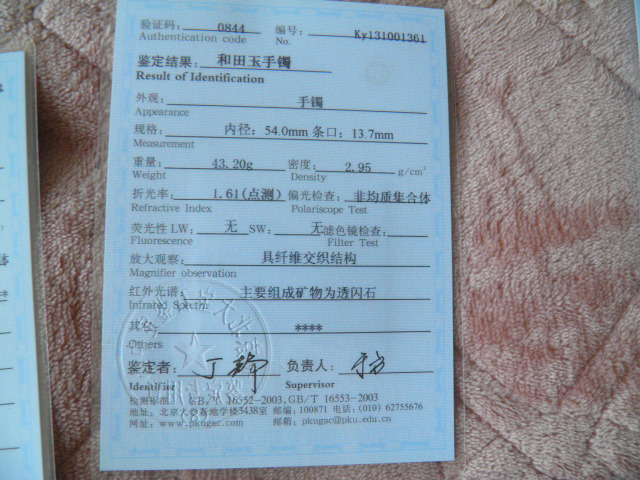 验证码: 0844 编号: Ky131001361
Authentication code No.
鉴定结果: 和田玉手镯
Result of Identification
外观: 手镯
Appearance
规格: 内径: 54.0mm 条口: 13.7mm
Measurement
重量: 43.20g 密度: 2.95 g/cm³
Weight Density
折光率: 1.61(点测) 偏光检查: 非均质集合体
Refractive Index Polariscope Test
荧光性 LW: 无 SW: 无 滤色镜检查:
Fluorescence Filter Test
放大观察: 具纤维交织结构
Magnifier observation
红外光谱: 主要组成矿物为透闪石
Infrared Spectra
其它: ****
Others
鉴定者: 丁 负责人:
Identifier Supervisor
检测标准: GB/T 16552-2003, GB/T 16553-2003
地址: 北京大学新地学楼3438室 邮编: 100871 电话: (010) 62755676
网址: www.pkugac.com 邮箱: pkugac@pku.edu.cn